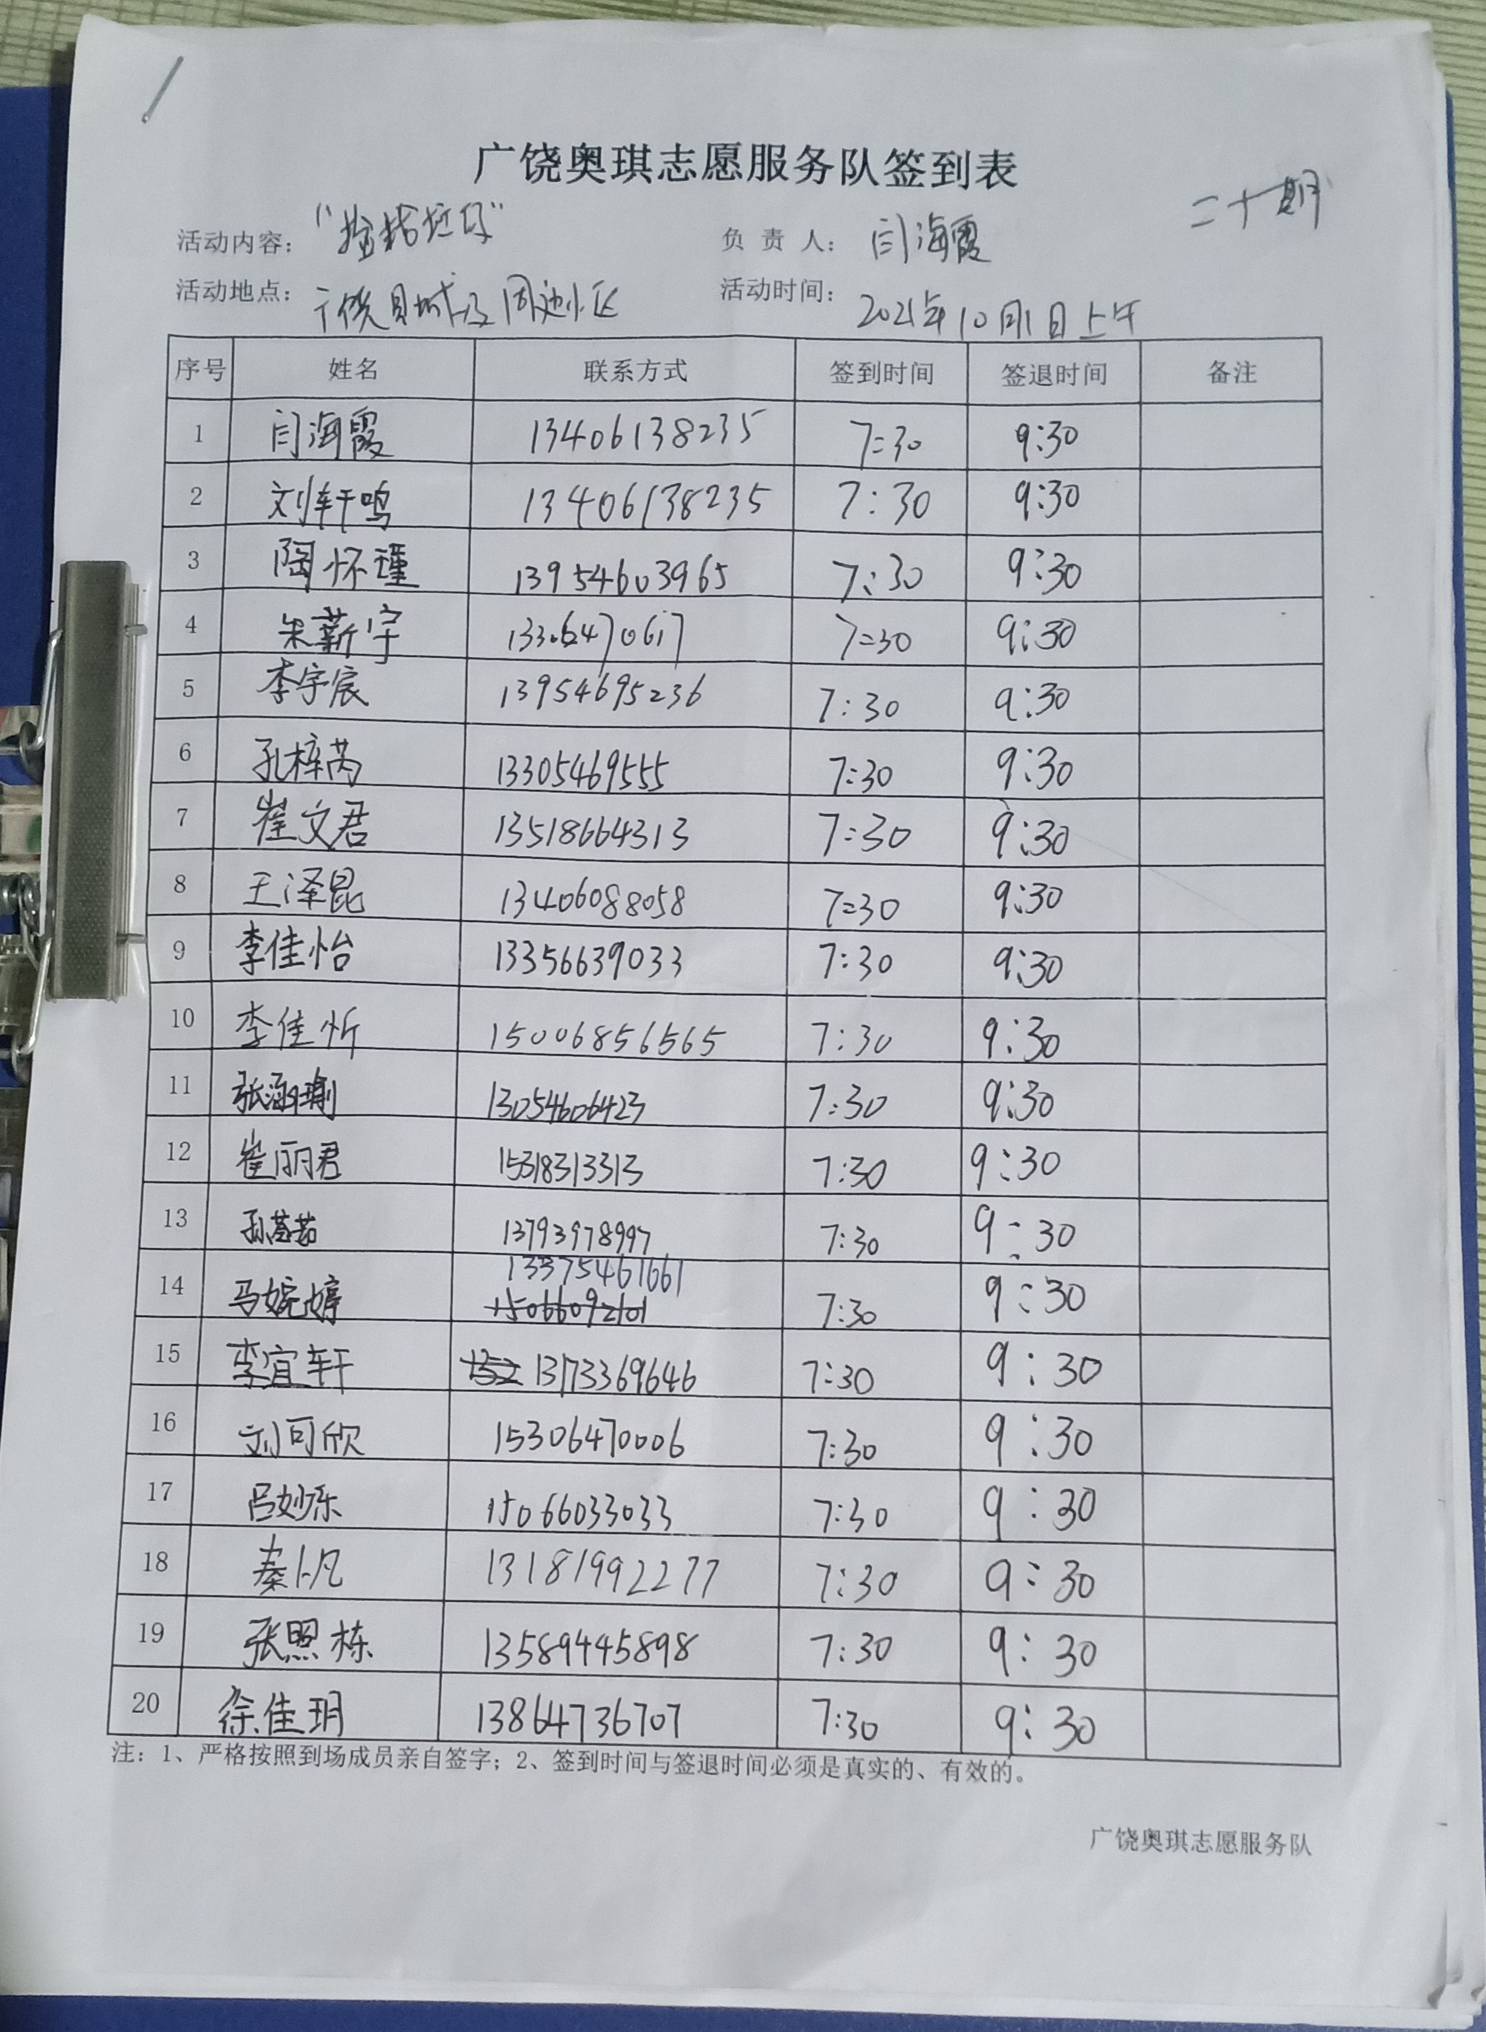 广饶奥琪志愿服务队签到表
二十期
活动内容： 负责人：闫海霞
活动地点：广饶县城及周边小区 活动时间：2021年10月1日上午
序号 姓名 联系方式 签到时间 签退时间 备注
1 闫海霞 13406138235 7:30 9:30
2 刘轩鸣 13406138235 7:30 9:30
3 陶怀瑾 13954603965 7:30 9:30
4 朱薪宇 13306470617 7:30 9:30
5 李宇宸 13954695236 7:30 9:30
6 孔梓芮 13305469555 7:30 9:30
7 崔文君 13518664313 7:30 9:30
8 王泽昆 13406088058 7:30 9:30
9 李佳怡 13356639033 7:30 9:30
10 李佳忻 15006856565 7:30 9:30
11 张涵瑜 13054606423 7:30 9:30
12 崔丽君 15318313313 7:30 9:30
13 13793978997 7:30 9:30
14 马婉婷 13375461661 15066092101 7:30 9:30
15 李宜轩 13173369646 7:30 9:30
16 刘可欣 15306470006 7:30 9:30
17 吕妙乐 15066033033 7:30 9:30
18 秦卜凡 13181992277 7:30 9:30
19 张照栋 13589445898 7:30 9:30
20 徐佳玥 13864736707 7:30 9:30
注：1、严格按照到场成员亲自签字；2、签到时间与签退时间必须是真实的、有效的。
广饶奥琪志愿服务队